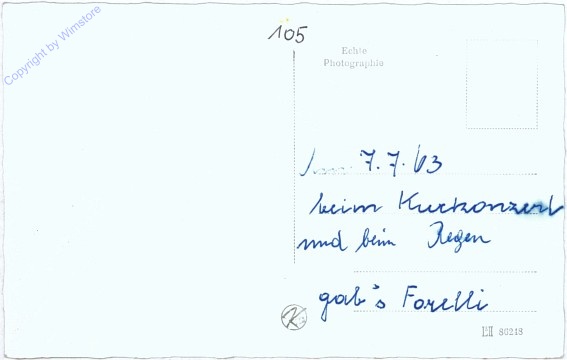 Copyright by Wimstore
105
Echte
Photographie
7.7.63
beim Kurkonzert
und beim Regen
gab's Forelli
80248